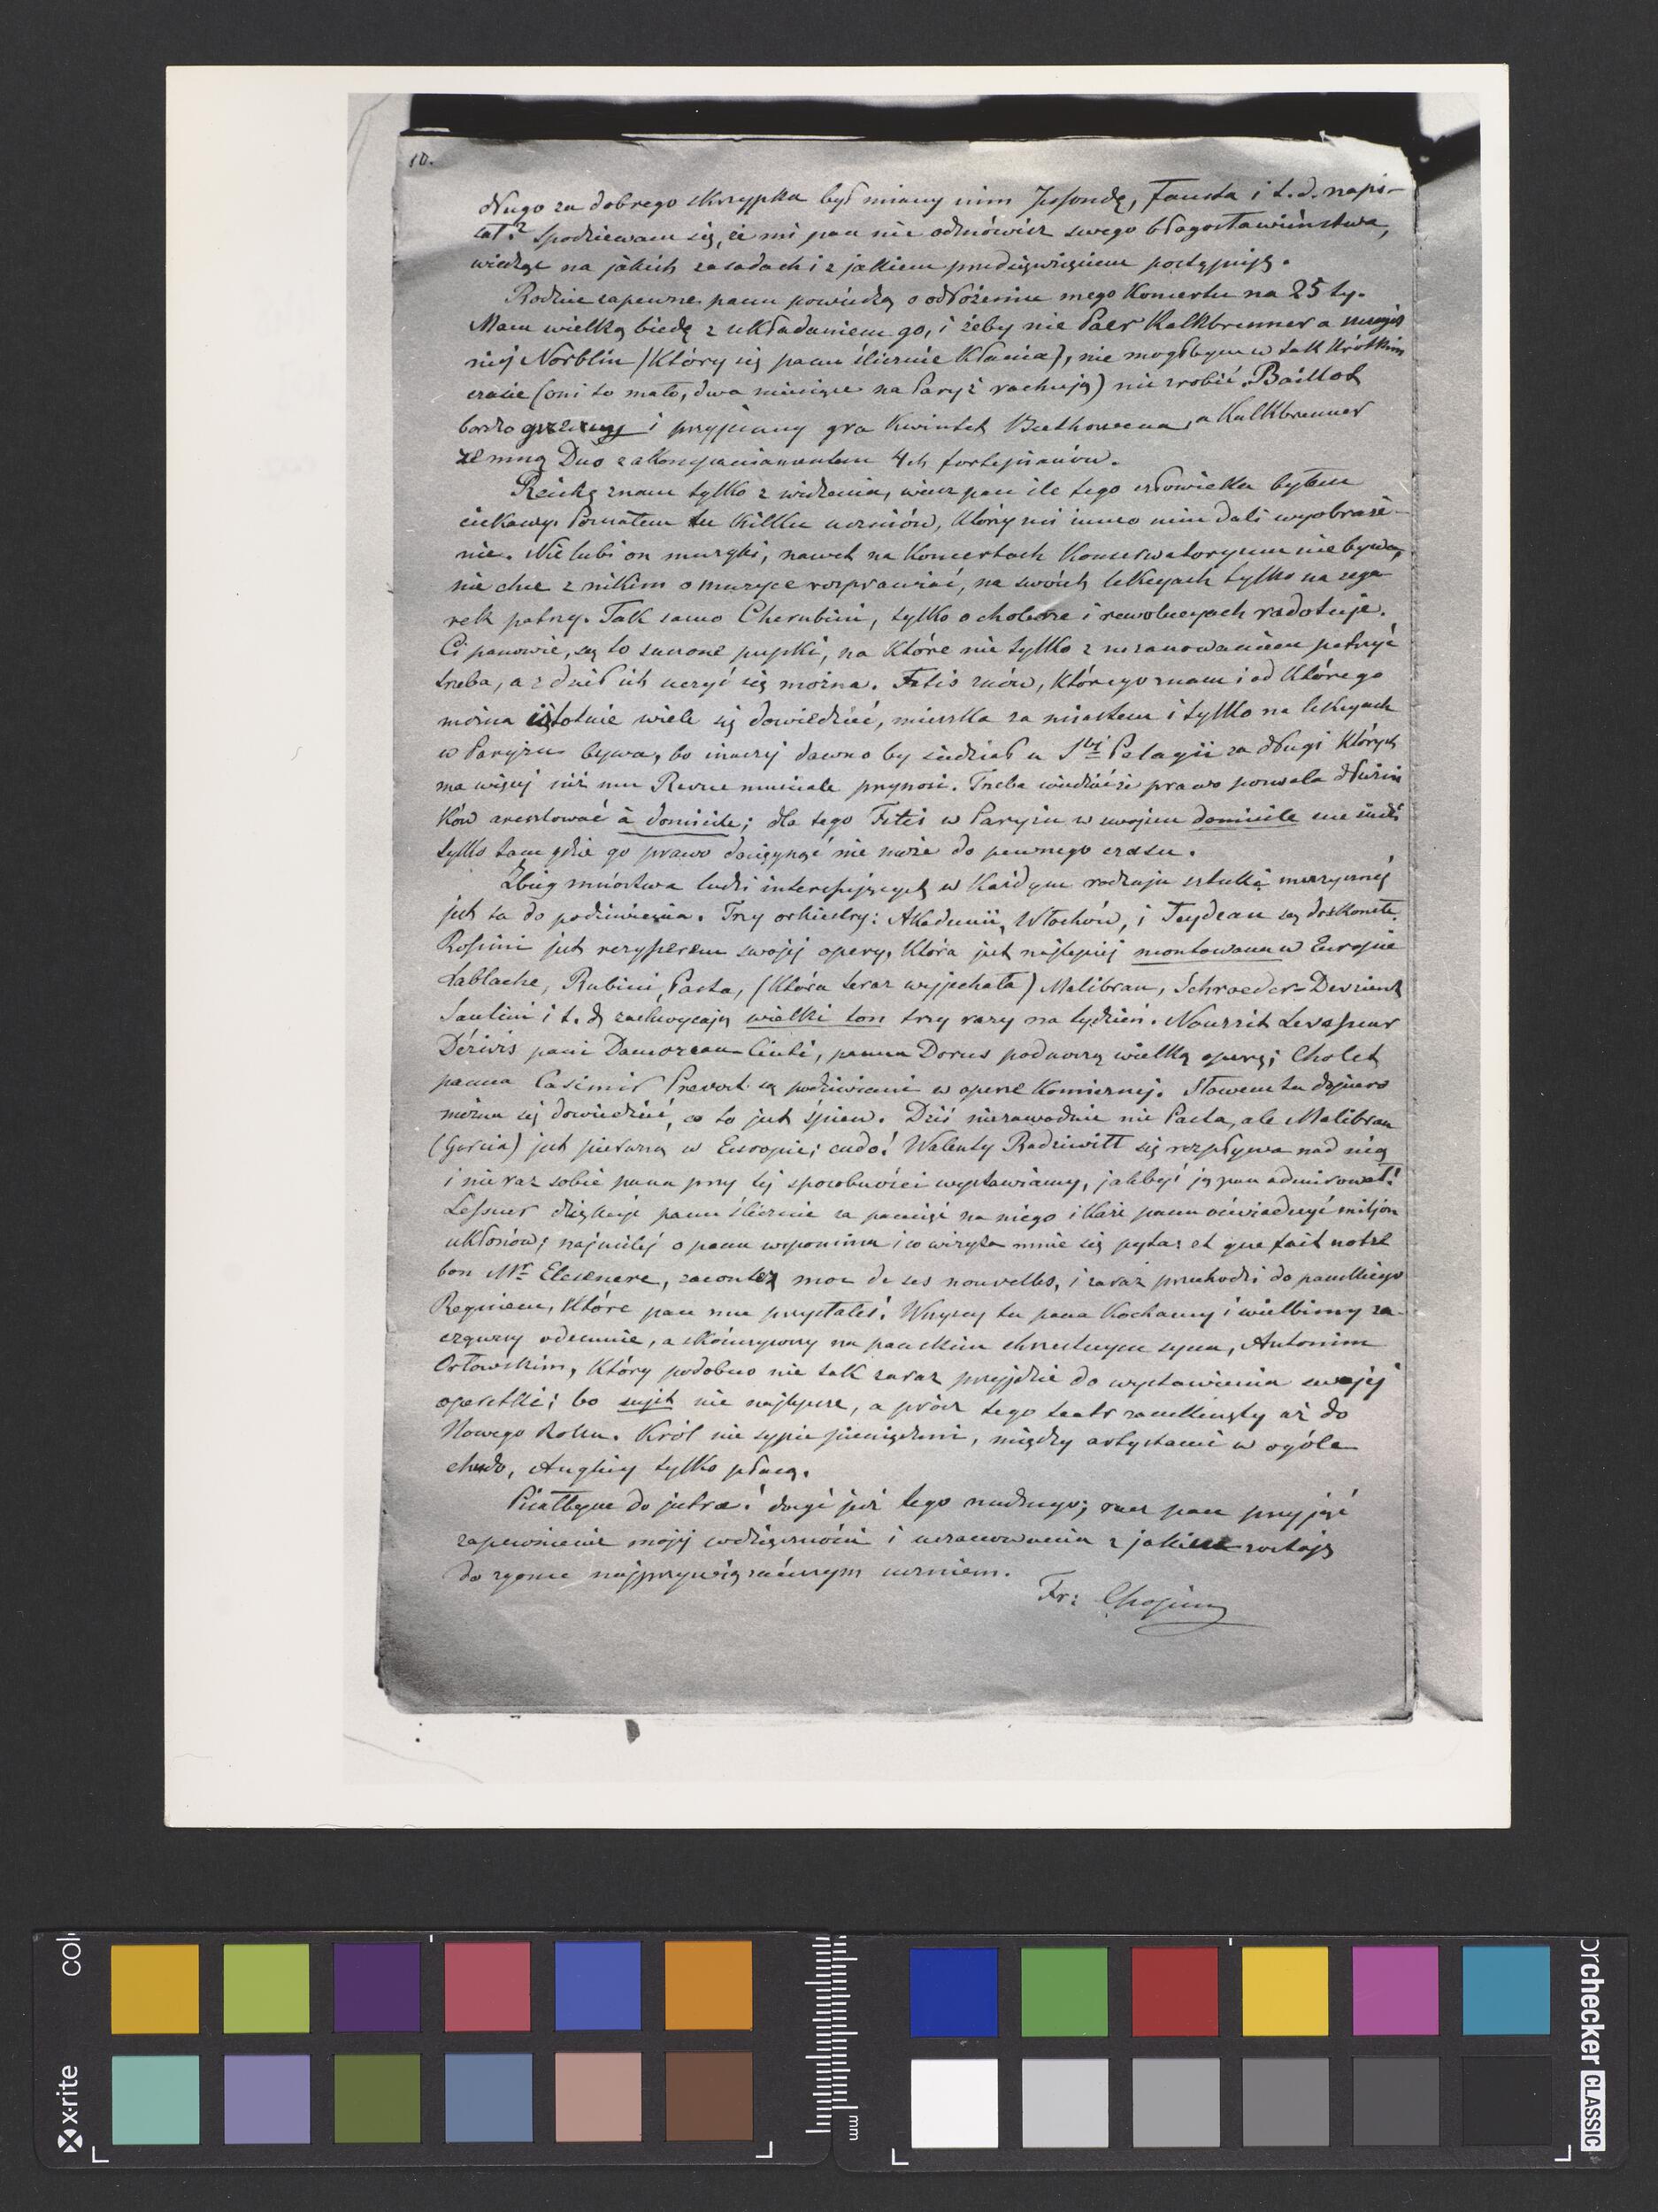 10.
długo za dobrego skrzypka był miany nim Jessondę, Fausta i t.d. napi-
sał? Spodziewam się, że mi pan nie odmówisz swego błogosławieństwa,
wiedząc na jakich zasadach i z jakiem przedsięwzięciem postępuję.
Rodzice zapewne panu powiedzą o odłożeniu mego Koncertu na 25ty.
Mam wielką biedę z układaniem go, i żeby nie Paer Kalkbrenner a
niej Norblin (który się panu ślicznie kłania), nie mógłbym w tak krótkim
czasie (oni to mało, dwa miesiące na Paryż rachują) nic zrobić. Baillot
bardzo grzeczny i przyjemny gra Kwintet Beethowena, a Kalkbrenner
ze mną Duo z akompaniamentem 4ch fortepianów.
Reichę znam tylko z widzenia, wiesz pan ile tego człowieka byłem
ciekawy. Poznałem tu kilku uczniów, którzy mi inne o nim dali wyobraże-
nie. Nie lubi on muzyki, nawet na Koncertach Konserwatoryum nie bywa,
nie chce z nikim o muzyce rozprawiać, na swoich lekcyach tylko na zega
rek patrzy. Tak samo Cherubini, tylko o cholerze i rewolucyach radotuje.
Ci panowie, są to suszone pupki, na które nie tylko z uszanowaniem patrzyć
trzeba, a z dzieł ich uczyć się można. Fetis znów, którego znam i od którego
można istotnie wiele się dowiedzieć, mieszka za miastem i tylko na lekcyach
w Paryżu bywa, bo inaczej dawno by siedział u Stej Pelagii za długi których
ma więcej niż mu Revue musicale przynosi. Trzeba wiedzieć że prawo pozwala dłużni
ków aresztować à domicile; dla tego Fetis w Paryżu w swojem domicile nie siedzi
tylko tam gdzie go prawo dosięgnąć nie może do pewnego czasu.
Zbieg mnóstwa ludzi interesujących w każdym rodzaju sztuką muzycznéj
jest tu do podziwienia. Trzy orkiestry: Akademii, Włochów, i Feydeau są doskonałe.
Rossini jest reżysserem swojej opery, która jest najlepiej montowana w Europie
Lablache, Rubini, Pasta, (która teraz wyjechała) Malibran, Schroeder-Devrient
Santini i t.d. zachwycają wielki ton trzy razy na tydzień. Nourrit Levasseur
Dérivis pani Damoreau-Cinti, panna Dorus podnoszą wielką operę; Chollet,
panna Casimir Prevost są podziwiani w operze Komicznej. Słowem tu dopiero
można się dowiedzieć, co to jest śpiew. Dziś niezawodnie nie Pasta, ale Malibran
(Garcia) jest pierwszą w Europie; cudo! Walenty Radziwiłł się rozpływa nad nią
i nie raz sobie pana przy tej sposobności wystawiamy, jakbyś ją pan admirował!
Lessuer dziękuje panu ślicznie za pamięć na niego i każe panu oświadczyć miljon
ukłonów; najmilej o panu wspomina i co wizyta mnie się pyta: et que fait notre
bon Mr Elesenere, racontez moi de ses nouvelles, i zaraz przechodzi do pańskiego
Requiem, które pan mu przysłałeś. Wszyscy tu pana Kochamy i wielbimy za-
cząwszy odemnie, a skończywszy na pańskim chrzestnym synu, Antonim
Orłowskim, który podobno nie tak zaraz przyjdzie do wystawienia swojej
operetki; bo sujet nie najlepsze, a prócz tego teatr zamknięty aż do
Nowego Roku. Król nie sypie pieniędzmi, między artystami w ogóle
chudo, Anglicy tylko płacą.
Pisałbym do jutra! dosyć już tego nudnego; racz pan przyjąć
zapewnienie mojej wdzięczności i uszanowania z jakiem zostaję
do zgonu najprzywiązańszym uczniem.
Fr: Chopin